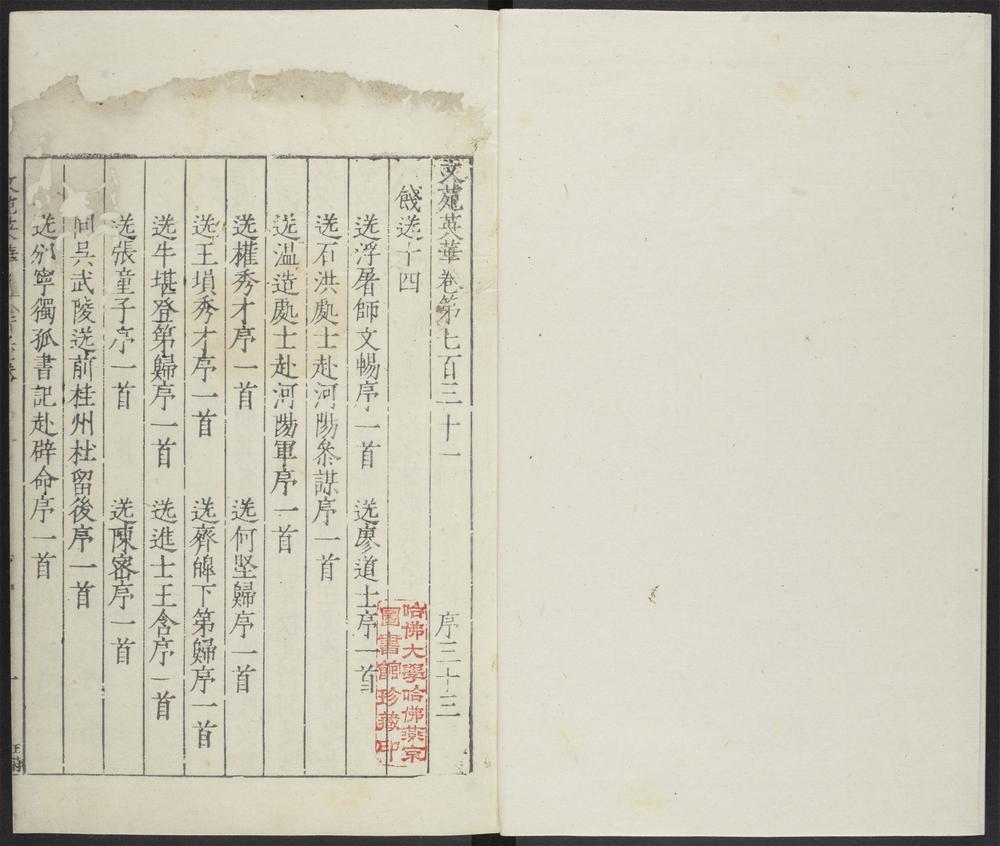 文苑英華卷第七百三十一 序三十三
餞送十四
送浮屠師文暢序一首 送廖道士序一首
送石洪處士赴河陽叅謀序一首
送温造處士赴河陽軍序一首
送權秀才序一首 送何堅歸序一首
送王塤秀才序一首 送齊皥下第歸序一首
送牛堪登第歸序一首 送進士王含序一首
送張童子序一首 送陳密序一首
同吳武陵送前桂州杜留後序一首
送邠寧獨孤書記赴辟命序一首
哈佛大學哈佛燕京
圖書館珍藏印